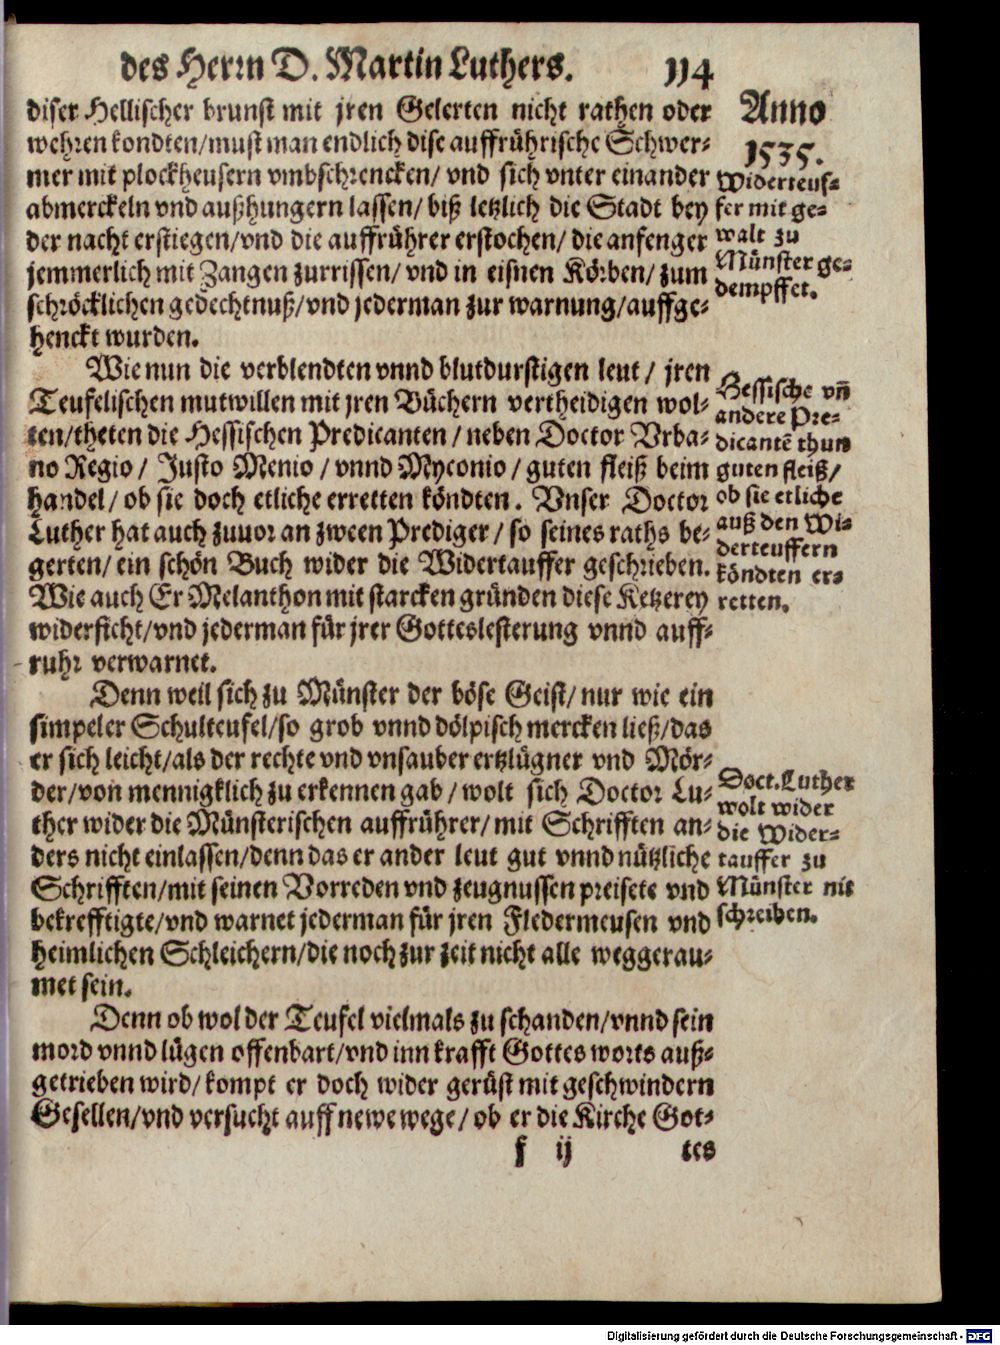 des Herrn D. Martin Luthers. 114
diser Hellischer brunst mit jren Gelerten nicht rathen oder
wehren kondten/must man endlich dise auffrührische Schwer-
mer mit plockheusern vmbschrencken/ vnd sich vnter einander
abmerckeln vnd außhungern lassen/ biß letzlich die Stadt bey
der nacht erstiegen/vnd die auffrührer erstochen/ die anfenger
jemmerlich mit Zangen zurrissen/ vnd in eisnen Körben/ zum
schröcklichen gedechtnuß/vnd jederman zur warnung/auffge-
henckt wurden.
Anno
1535.
Widerteuf-
fer mit ge-
walt zu
Münster ge-
dempffet.
Wie nun die verblendten vnnd blutdurstigen leut/ jren
Teufelischen mutwillen mit jren Büchern vertheidigen wol-
ten/theten die Hessischen Predicanten/ neben Doctor Vrba-
no Regio/ Justo Menio/ vnnd Myconio/ guten fleiß beim
handel/ ob sie doch etliche erretten köndten. Vnser Doctor
Luther hat auch zuuor an zween Prediger/ so seines raths be-
gerten/ ein schön Buch wider die Widertauffer geschrieben.
Wie auch Er Melanthon mit starcken gründen diese Ketzerey
widerficht/vnd jederman für jrer Gotteslesterung vnnd auff-
ruhr verwarnet.
Hessische vñ
andere Pre-
dicantẽ thun
guten fleiß/
ob sie etliche
auß den Wi-
derteuffern
köndten er-
retten.
Denn weil sich zu Münster der böse Geist/ nur wie ein
simpeler Schulteufel/so grob vnnd dölpisch mercken ließ/das
er sich leicht/als der rechte vnd vnsauber ertzlügner vnd Mör-
der/von mennigklich zu erkennen gab/ wolt sich Doctor Lu-
ther wider die Münsterischen auffrührer/ mit Schrifften an-
ders nicht einlassen/denn das er ander leut gut vnnd nützliche
Schrifften/mit seinen Vorreden vnd zeugnussen preisete vnd
bekrefftigte/vnd warnet jederman für jren Fledermeusen vnd
heimlichen Schleichern/die noch zur zeit nicht alle weggerau-
met sein.
Doct. Luther
wolt wider
die Wider-
tauffer zu
Münster nit
schreiben.
Denn ob wol der Teufel vielmals zu schanden/vnnd sein
mord vnnd lügen offenbart/vnd inn krafft Gottes worts auß-
getrieben wird/ kompt er doch wider gerüst mit geschwindern
Gesellen/vnd versucht auff newe wege/ ob er die Kirche Got-
f ij tes
Digitalisierung gefördert durch die Deutsche Forschungsgemeinschaft - DFG